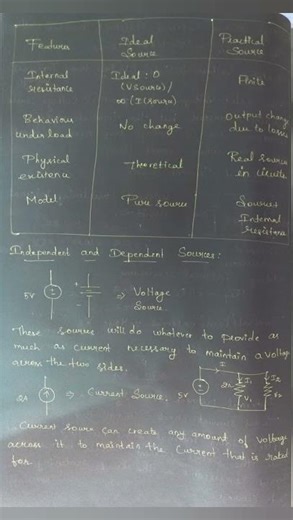 Feature Ideal Source Practical Source
Internal resistance Ideal : 0 (VSource) / ∞ (I Source) Finite
Behaviour under load No change Output change due to losses
Physical existence Theoretical Real source in circuits
Model Pure source Source + Internal Resistance
Independent and Dependent Sources:
5V + ⇒ Voltage Source
These sources will do whatever to provide as
much as current necessary to maintain a voltage
across the two sides.
2A ⇒ Current Source. 5V I 2Ω I₁ V₁ I₂
Current source can create any amount of voltage
across it to maintain the current that is rated
for.